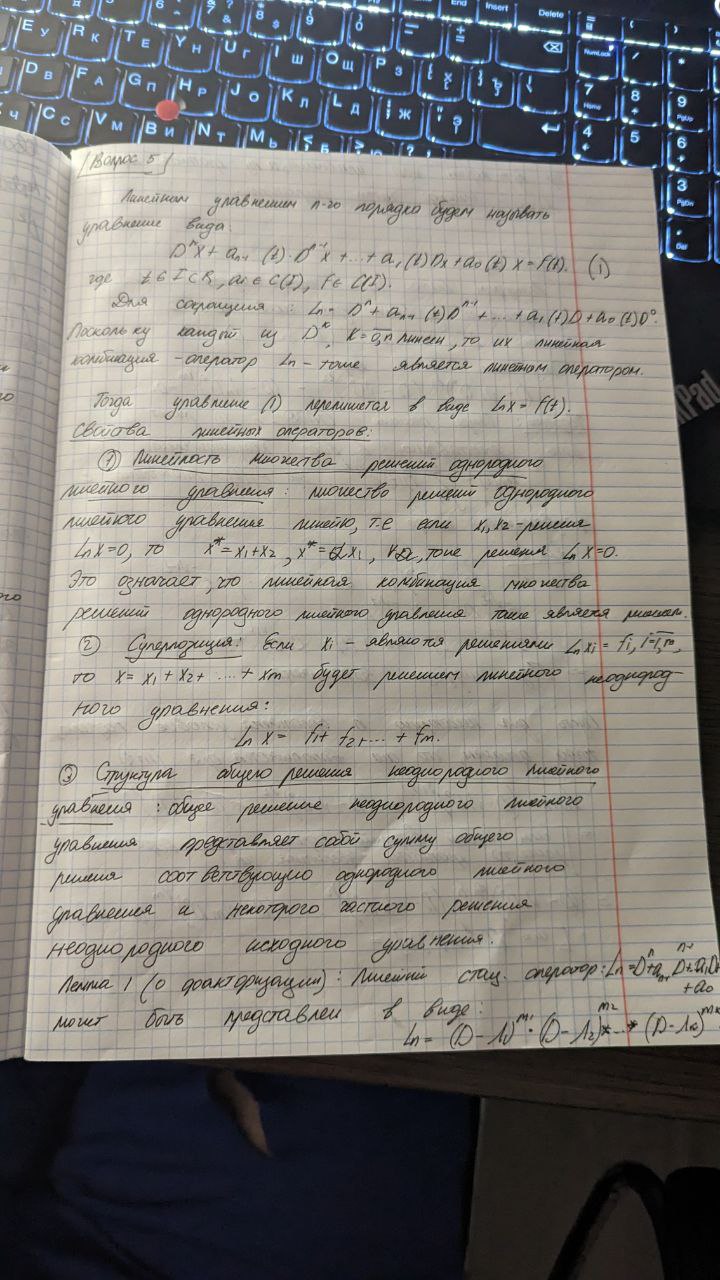 [Вопрос 5]
Линейным уравнением n-го порядка будем называть
уравнение вида:
Dⁿx + aₙ₋₁(t)·Dⁿ⁻¹x + ... + a₁(t)Dx + a₀(t)x = f(t). (1)
где t ∈ I ⊂ R, aᵢ ∈ C(I), f ∈ C(I).
Для сокращения: Lₙ = Dⁿ + aₙ₋₁(t)Dⁿ⁻¹ + ... + a₁(t)D + a₀(t)D⁰.
Поскольку каждый из Dᵏ, k=0,n линеен, то их линейная
комбинация - оператор Lₙ - тоже является линейным оператором.
Тогда уравнение (1) перепишется в виде Lₙx = f(t).
Свойства линейных операторов:
① Линейность множества решений однородного
линейного уравнения: множество решений однородного
линейного уравнения линейно, т.е если x₁, x₂ - решения
Lₙx=0, то x* = x₁+x₂, x* = αx₁, ∀α, тоже решения Lₙx=0.
Это означает, что линейная комбинация множества
решений однородного линейного уравнения тоже является решением.
② Суперпозиция: Если xᵢ - являются решениями Lₙxᵢ = fᵢ, i=1,m,
то x = x₁ + x₂ + ... + xₘ будет решением линейного неоднород-
ного уравнения:
Lₙx = f₁ + f₂ + ... + fₘ.
③ Структура общего решения неоднородного линейного
уравнения: общее решение неоднородного линейного
уравнения представляет собой сумму общего
решения соответствующего однородного линейного
уравнения и некоторого частного решения
неоднородного исходного уравнения.
Лемма 1 (о факторизации): Линейный стац. оператор: Lₙ = Dⁿ + aₙ₋₁Dⁿ⁻¹ + a₁D
+ a₀
может быть представлен в виде:
Lₙ = (D-λ₁)ᵐ¹ · (D-λ₂)ᵐ² * ... * (D-λₖ)ᵐᵏ